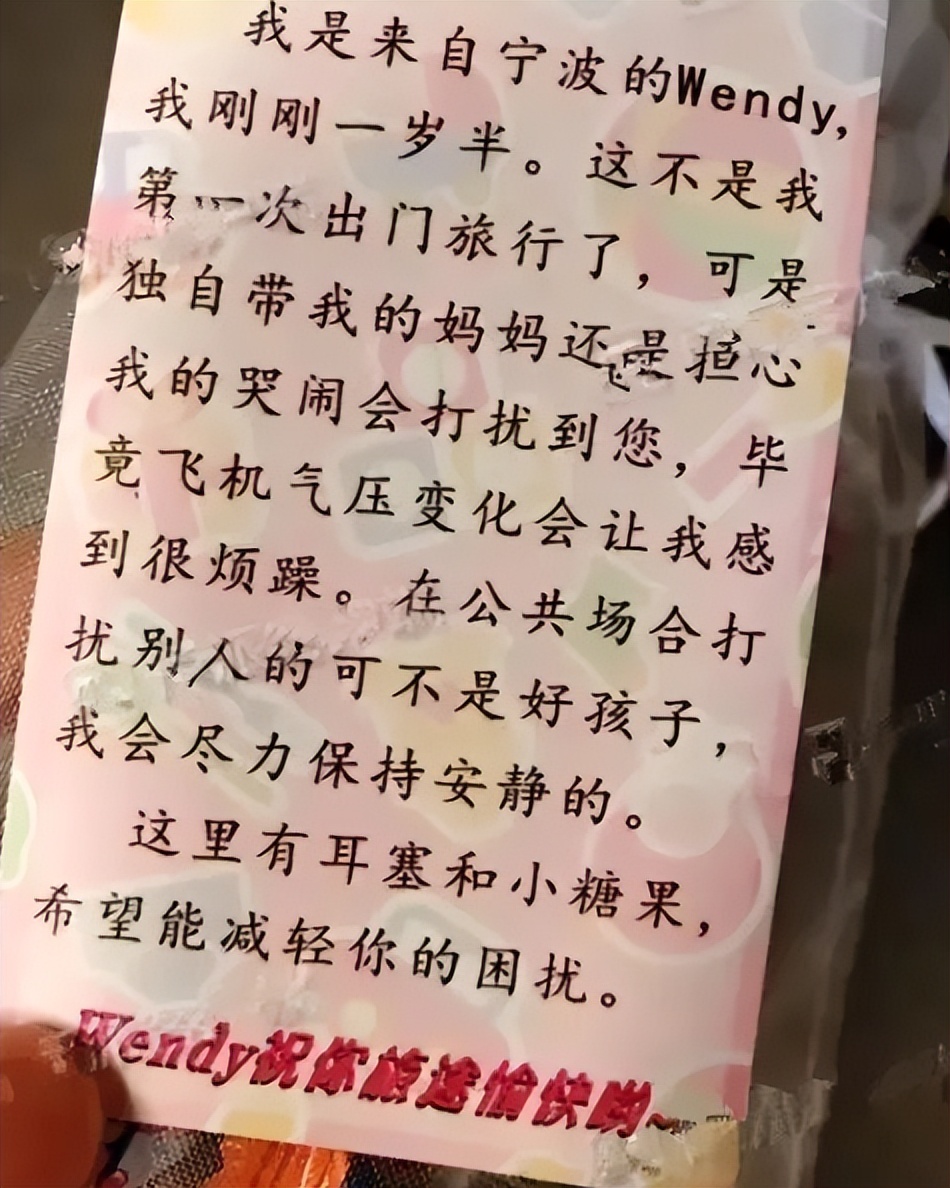 我是来自宁波的Wendy,
我刚刚一岁半。这不是我
第一次出门旅行了，可是
独自带我的妈妈还是担心
我的哭闹会打扰到您，毕
竟飞机气压变化会让我感
到很烦躁。在公共场合打
扰别人的可不是好孩子，
我会尽力保持安静的。
这里有耳塞和小糖果，
希望能减轻你的困扰。
Wendy祝你旅途愉快哟~